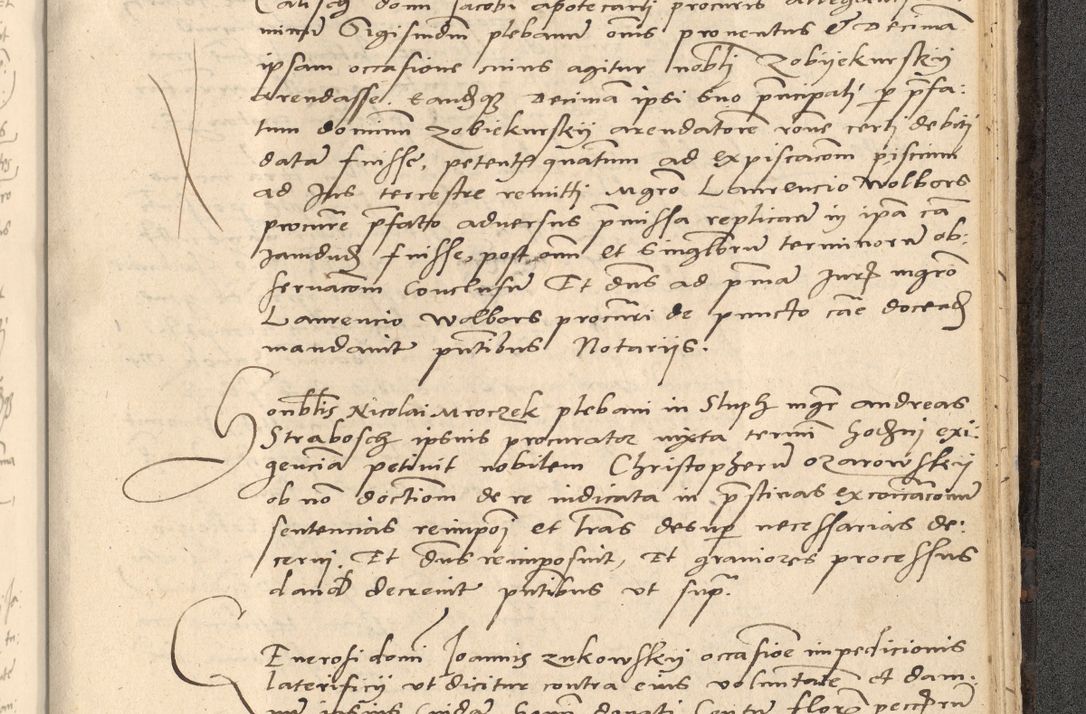 Calisch domi Jacobi apotecarii procuris
minu Sigismdm plebanu omis proventus et Decima
ipsam occasione cuius agitur nobli Zobyekurskÿ
arendasse. Eandqz Decima ipsi suo pncipali p pfa:
tum dominum Zobiekurskÿ arendatore rone certi debiti
data fuisse, petente quatum ad expiscacom piscium
ad Jus terrestre remitti Mgro Laurencio Wolbors
procure pfatto adversus pmissa replicau in ipa ca
jamdud fuisse post omi et singloru terminoru ob:
servacom conclusu Et dns ad pma jur mgro
Laurencio Wolbors procuri de puncto cae docend
mandauit pntibus Notariis.
Honblis Nicolai Mroczek plebani in Stuph mgr andreas
Strabosch ipsius procurator iuxta termi hodni exi:
gencia petiuit nobilem Christopheru Ozarowskÿ
ob no doctiom de re iudicata in pstinas excoicacomu
sentencias reimpoj et lras desup necessarias de:
cerni. Et dns reimposuit, Et graviores processus
dand decreuit pntibus ut supa.
Generosi domi Joannis Zukowskÿ occasioe impedicionis
laterificii ut dicitur contra eius voluntate et dam: